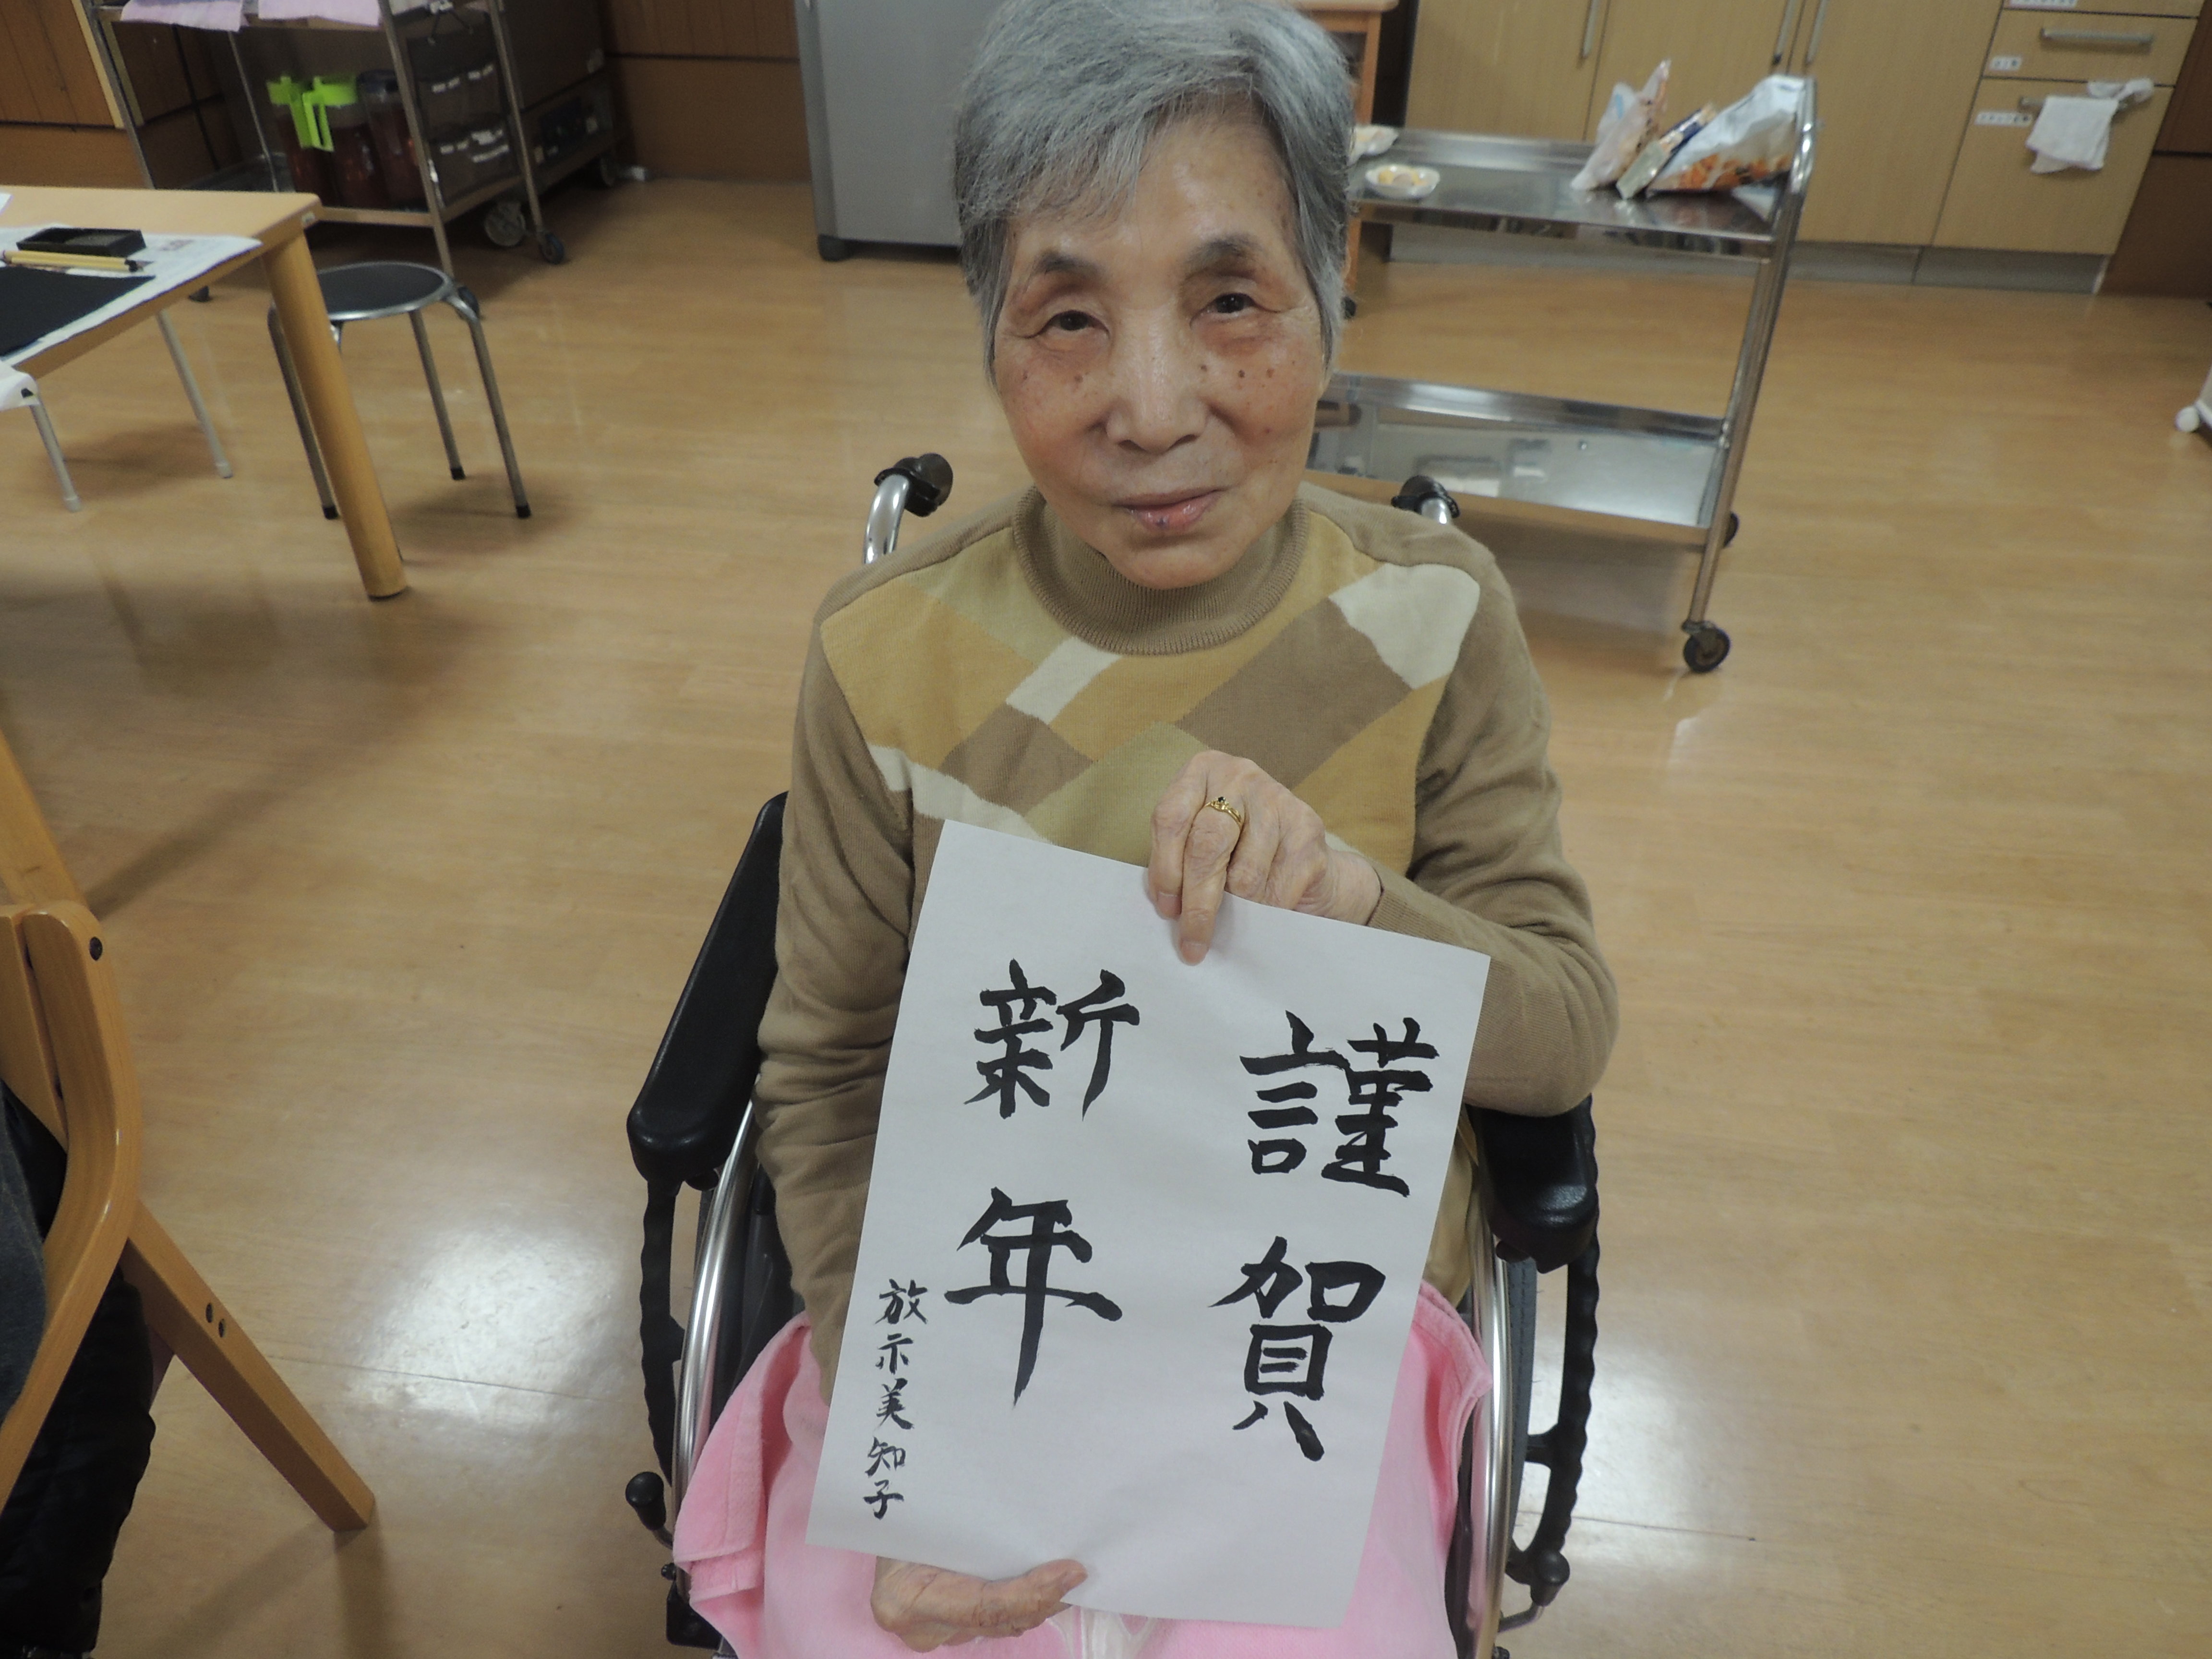 謹賀
新年
放示美知子